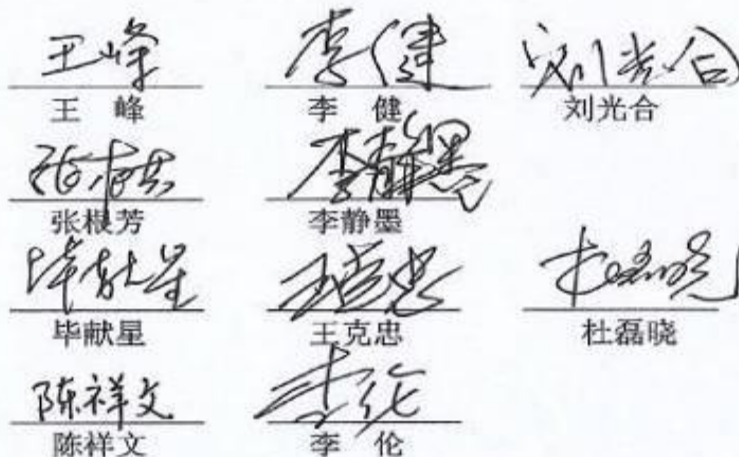 王峰 李健 刘光合
王 峰 李 健 刘光合
张根芳 李静墨
张根芳 李静墨
毕献星 王克忠 杜磊晓
毕献星 王克忠 杜磊晓
陈祥文 李伦
陈祥文 李 伦